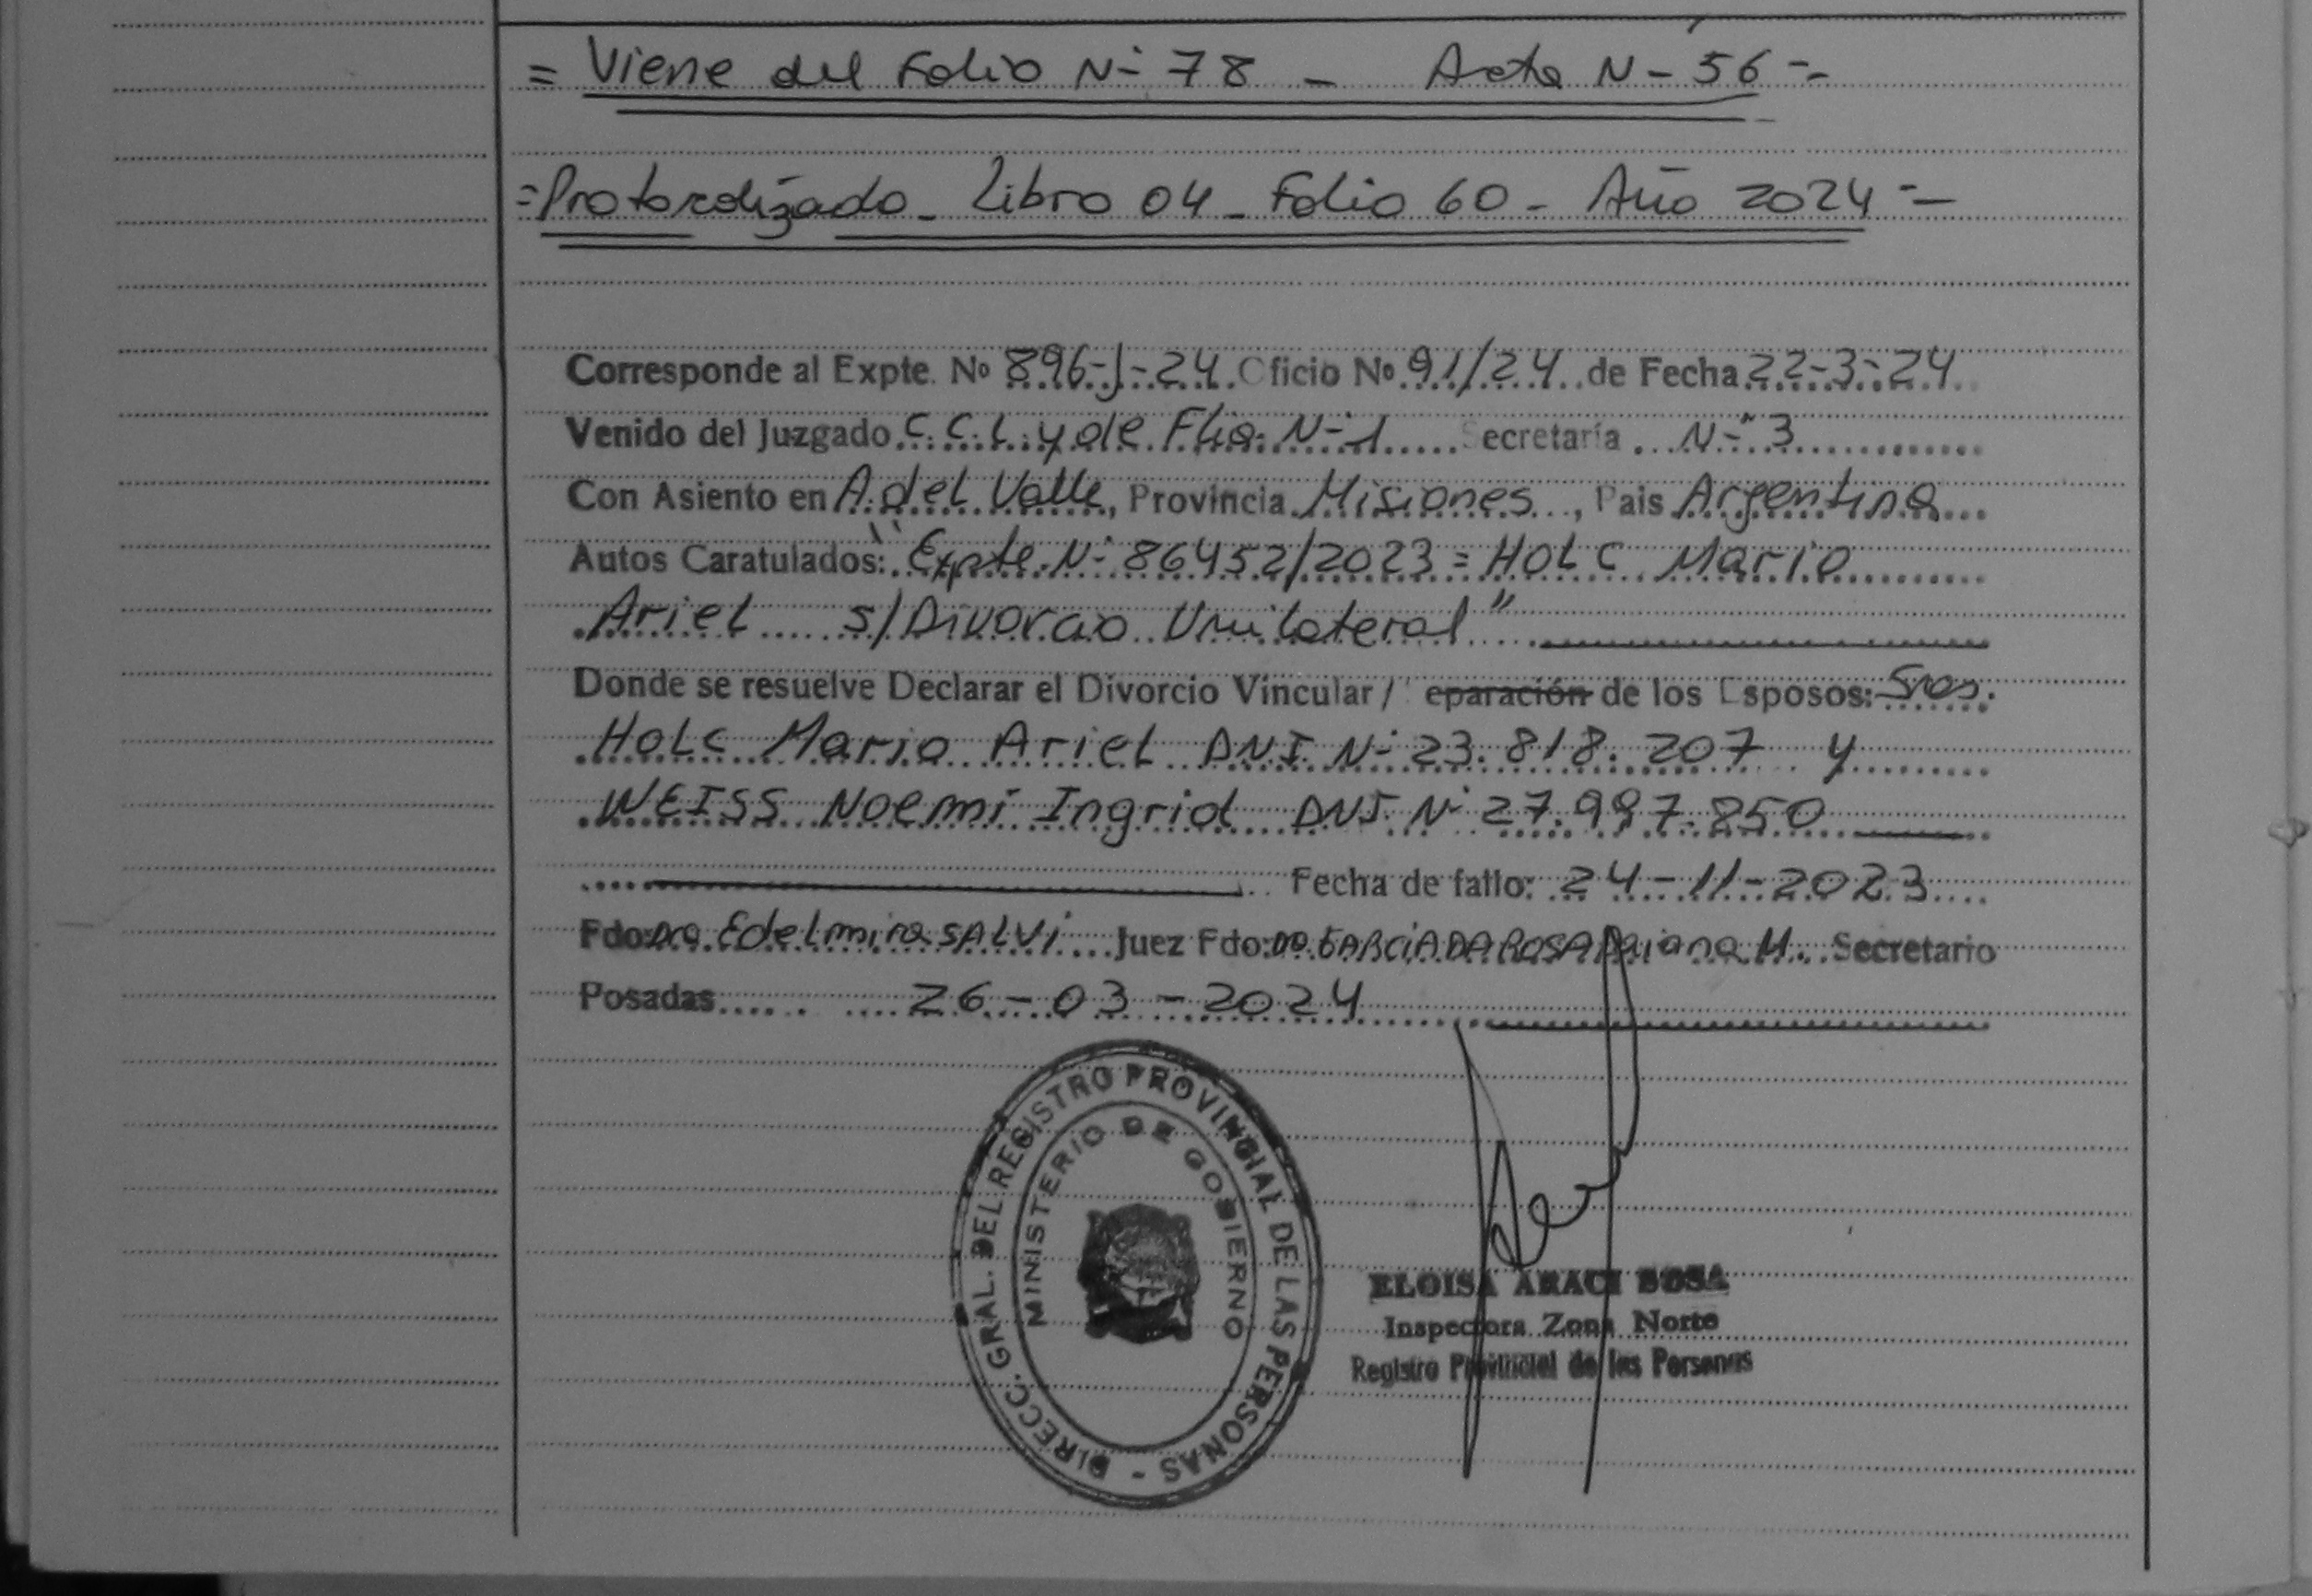 = Viene del Folio Nº 78 - Acta Nº 56 =
= Protocolizado - Libro 04 - Folio 60 - Año 2024 =
Corresponde al Expte. Nº 896-J-24 Oficio Nº 91/24 de Fecha 22-3-24
Venido del Juzgado C.C.L. y de Flia. Nº 1 Secretaría Nº 3
Con Asiento en A. del Valle, Provincia Misiones, Pais Argentina
Autos Caratulados: "Expte. Nº 86452/2023 = HOLC Mario
Ariel s/Divorcio Unilateral"
Donde se resuelve Declarar el Divorcio Vincular / eparación de los Esposos: Sres.
HOLC Mario Ariel DNI Nº 23.818.207 y
WEISS Noemi Ingrid DNI Nº 27.997.850
Fecha de fallo: 24-11-2023
Fdo: Dra. Edelmira SALVI Juez Fdo: Dra. GARCIA DA ROSA Daiana M. Secretario
Posadas 26-03-2024
DIRECC. GRAL. DEL REGISTRO PROVINCIAL DE LAS PERSONAS -
MINISTERIO DE GOBIERNO
ELOISA ARACI SOSA
Inspectora Zona Norte
Registro Provincial de las Personas